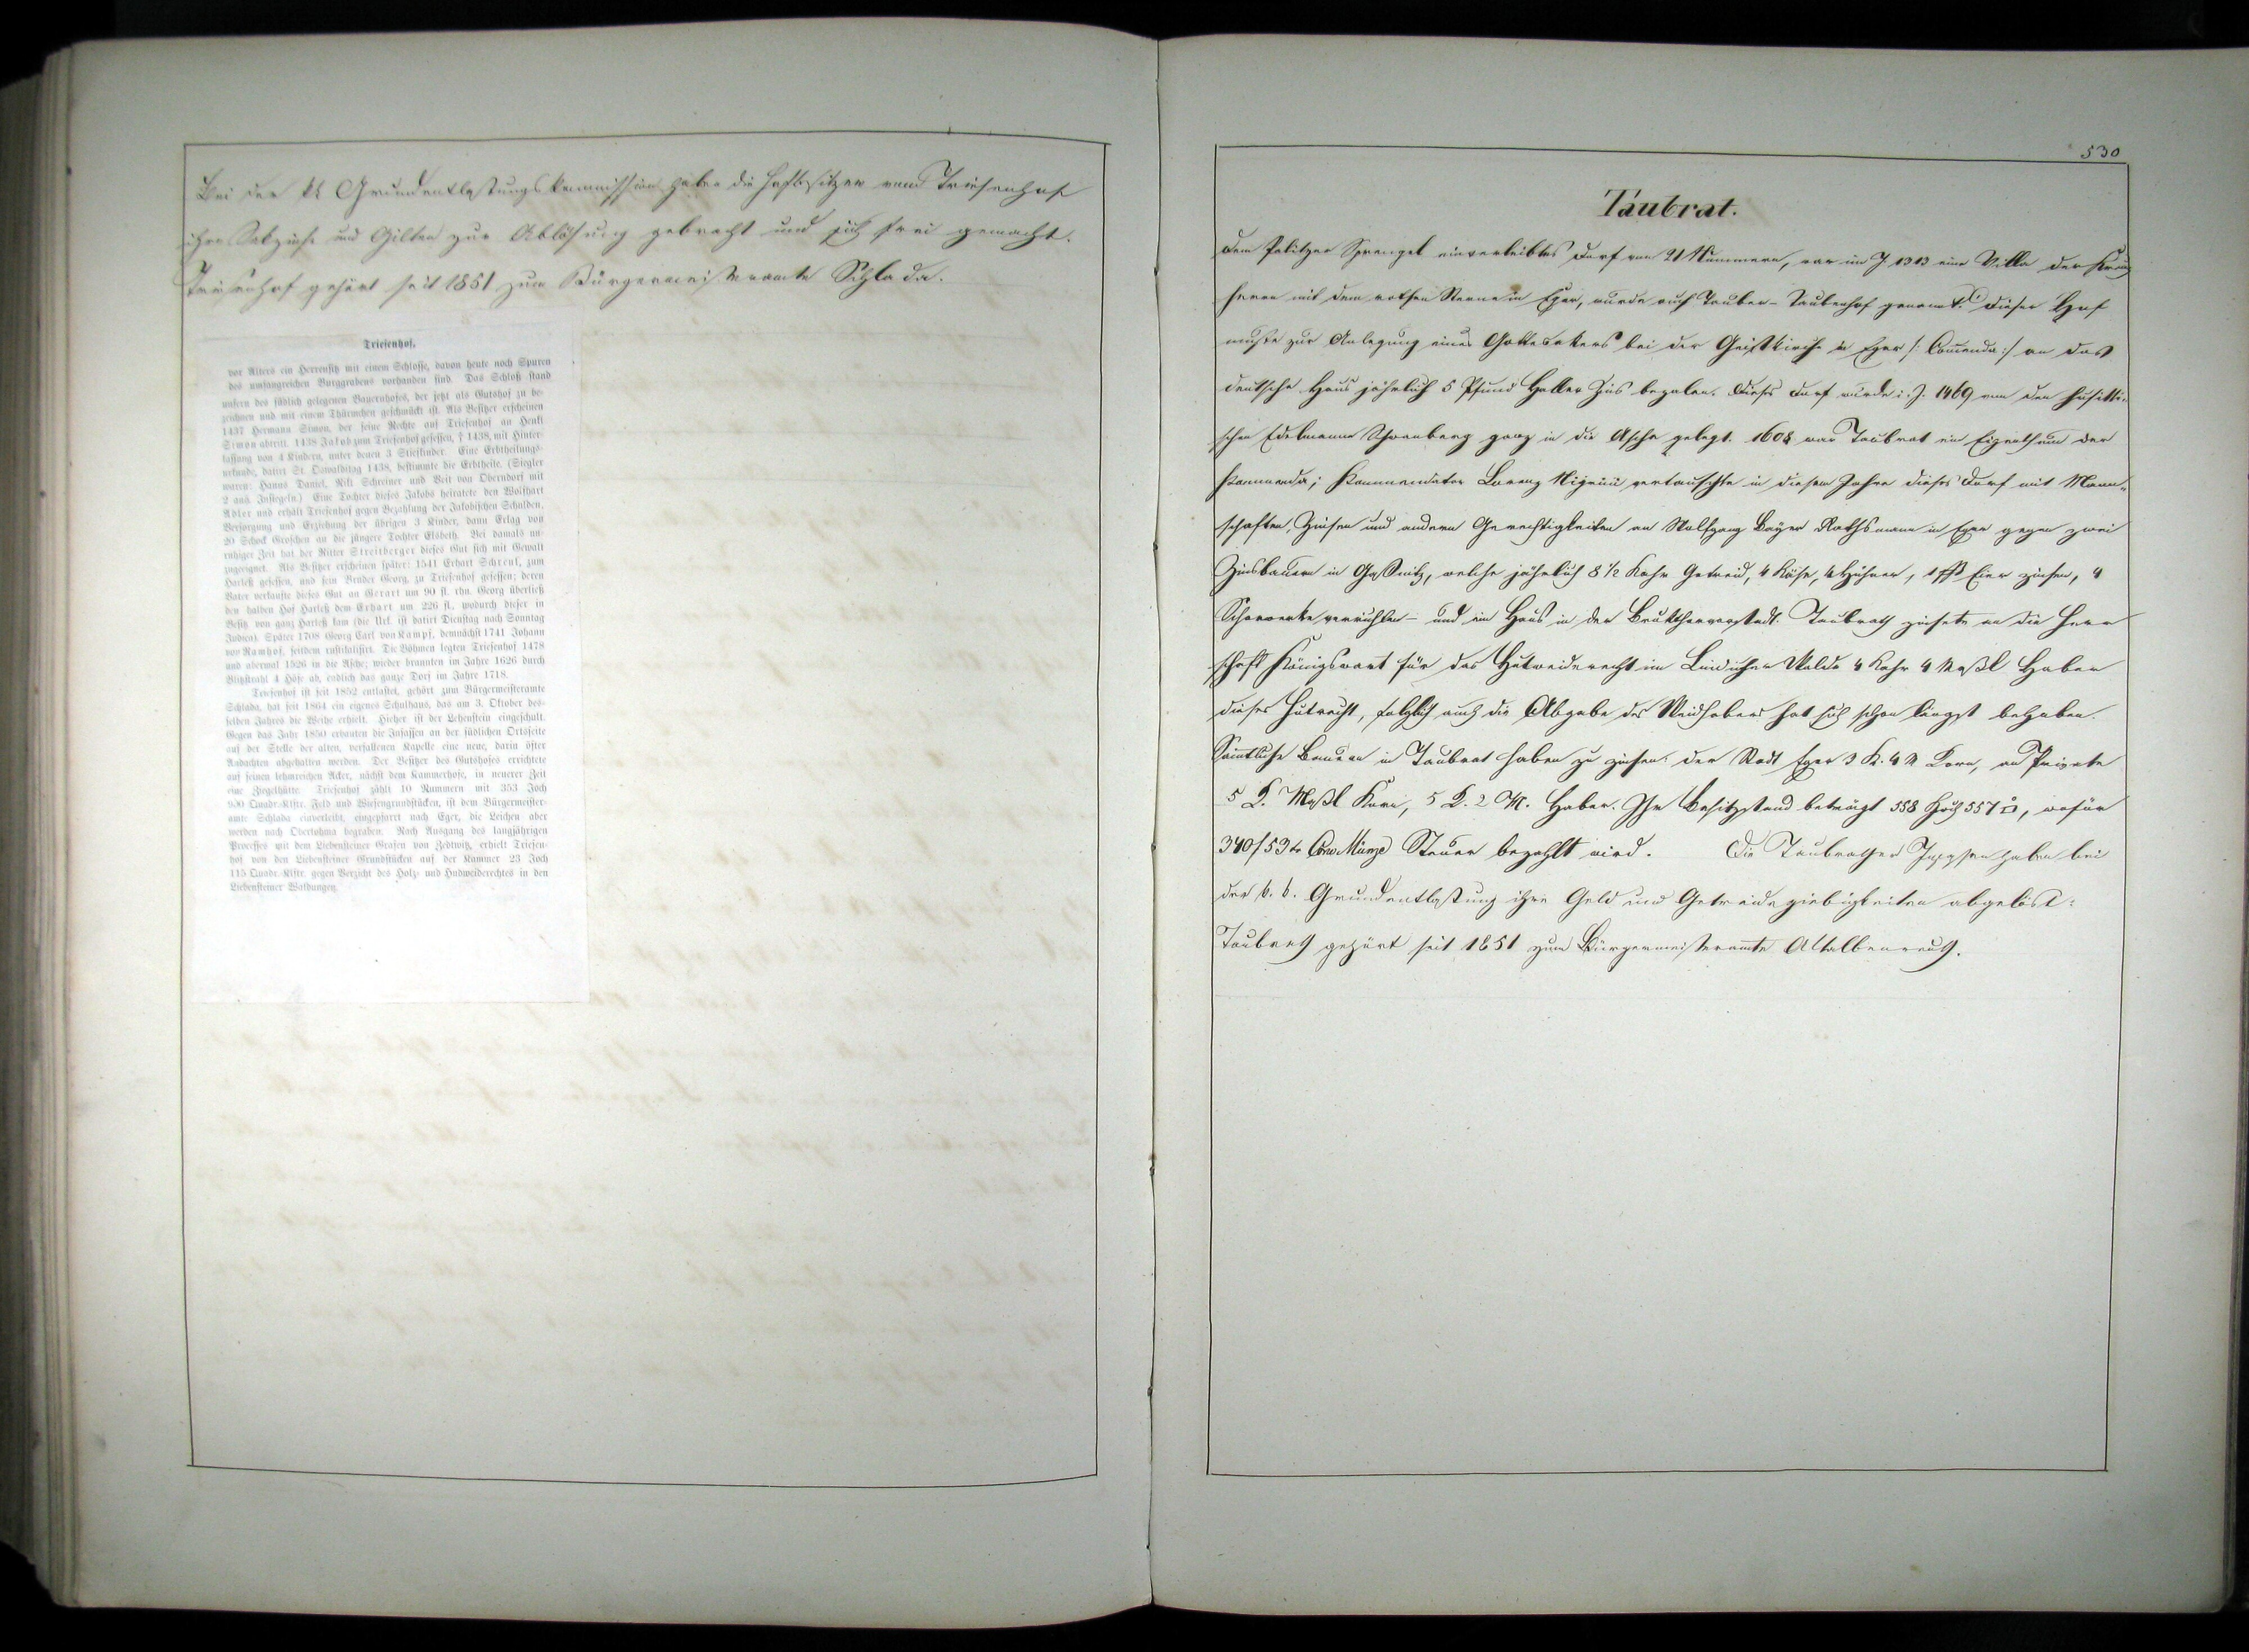 Bei der kk Grundentlastungskommission haben die Hofbesitzer von Triesenhof
ihre Sakzinse und Gilten zur Ablösung gebracht und sich frei gemacht.
Triesenhof gehört seit 1851 zum Bürgermeisteramte Schlada.
Triesenhof,
vor Alters ein Herrensitz mit einem Schlosse, davon heute noch Spuren
des umfangreichen Burggrabens vorhanden sind. Das Schloß stand
unfern des südlich gelegenen Bauernhofes, der jetzt als Gutshof zu be-
zeichnen und mit einem Thürmchen geschmückt ist. Als Besitzer erscheinen
1437 Hermann Simon, der seine Rechte auf Triesenhof an Henkl
Simon abtritt. 1438 Jakob zum Triesenhof gesessen, † 1438, mit Hinter-
lassung von 4 Kindern, unter denen 3 Stiefkinder. Eine Erbtheilungs-
urkunde, datirt St. Oswaldstag 1438, bestimmte die Erbtheile. (Siegler
waren: Hanns Daniel, Nikl Schreiner und Veit von Oberndorf mit
2 anh. Insiegeln.) Eine Tochter dieses Jakobs heiratete den Wolfhart
Adler und erhält Triesenhof gegen Bezahlung der Jakobischen Schulden,
Versorgung und Erziehung der übrigen 3 Kinder, dann Erlag von
20 Schock Groschen an die jüngere Tochter Elsbeth. Bei damals un-
ruhiger Zeit hat der Ritter Streitberger dieses Gut sich mit Gewalt
zugeeignet. Als Besitzer erscheinen später: 1541 Erhart Schreuf, zum
Harleß gesessen, und sein Bruder Georg, zu Triesenhof gesessen; deren
Vater verkaufte dieses Gut an Gerart um 90 fl. rhn. Georg überließ
den halben Hof Harleß dem Erhart um 226 fl., wodurch dieser in
Besitz von ganz Harleß kam (die Urk. ist datirt Dienstag nach Sonntag
Judica). Später 1708 Georg Carl von Kampf, demnächst 1741 Johann
von Ramhof, seitdem rustikalisirt. Die Böhmen legten Triesenhof 1478
und abermal 1526 in die Asche; wieder brannten im Jahre 1626 durch
Blitzstrahl 4 Höfe ab, endlich das ganze Dorf im Jahre 1718.
Triesenhof ist seit 1852 entlastet, gehört zum Bürgermeisteramte
Schlada, hat seit 1864 ein eigenes Schulhaus, das am 3. Oktober des-
selben Jahres die Weihe erhielt. Hieher ist der Lehenstein eingeschult.
Gegen das Jahr 1850 erbauten die Insassen an der südlichen Ortsseite
auf der Stelle der alten, verfallenen Kapelle eine neue, darin öfter
Andachten abgehalten werden. Der Besitzer des Gutshofes errichtete
auf seinen lehmreichen Acker, nächst dem Kammerhofe, in neuerer Zeit
eine Ziegelhütte. Triesenhof zählt 10 Nummern mit 353 Joch
950 Quadr.-Klftr. Feld und Wiesengrundstücken, ist dem Bürgermeister-
amte Schlada einverleibt, eingepfarrt nach Eger, die Leichen aber
werden nach Oberlohma begraben. Nach Ausgang des langjährigen
Processes mit dem Liebensteiner Grafen von Zedtwitz, erhielt Triesen-
hof von den Liebensteiner Grundstücken auf der Kammer 23 Joch
115 Quadr.-Klftr. gegen Verzicht des Holz- und Hudweiderechtes in den
Liebensteiner Waldungen.
530
Taubrat.
dem Palitzer Sprengel einverleibtes Dorf von 21 Nummern, war im J. 1313 eine Villa der Kreuz
herrn mit dem rothen Sterne in Eger, wurde auch Tauber- Taubenhof genannt. Dieser Hof
mußte zur Anlegung eines Gottesakers bei der Geistkirche in Eger /: Comenda :/ an das
deutsche Haus jährlich 5 Pfund Haller Zins bezalen. Dieses Dorf wurde i. J. 1469 von den husitti-
schen Edelmanne Schwanberg ganz in die Asche gelegt. 1608 war Taubrat ein Eigenthum der
Kommenda; Kommendator Lorenz Nigrini vertauschte in diesem Jahre dieses Dorf mit Mann-
schaften, Zinsen und andern Gerechtigkeiten an Wolfgang Bayer Rathsmann in Eger gegen zwei
Zinsbauern in Gaßnitz, welche jährlich 8 1/2 Kahr Getreid, 4 Käse, 4 Hühner, 1 ßß Eier zinsen, 4
Scharwerke verrichten - und ein Haus in der Brukthorvorstadt. Taubrath zinsete an die Herr
schaft Königswart für das Hutweiderecht im Walde 4 Kahr 4 Maßl Haber
dieses Hutrecht, folglich auch die Abgabe des Weidhabers hat sich schon längst behoben.
Sämtliche Bauern in Taubrat haben zu zinsen der Stadt Eger 3 K. 4 M Korn, an Private
5 K. Maßl Korn, 5 K. 2 M. Haber. Ihr Besitzstand beträgt 558 Joch 557 □, wofür
340/53 kr Conv. Münze Steuer bezahlt wird. Die Taubrather Insassen haben bei
der k. k. Grundentlastung ihre Geld und Getreidegiebigkeiten abgelöst:
Taubrath gehört seit 1851 zum Bürgermeisteramte Altalbenreuth.